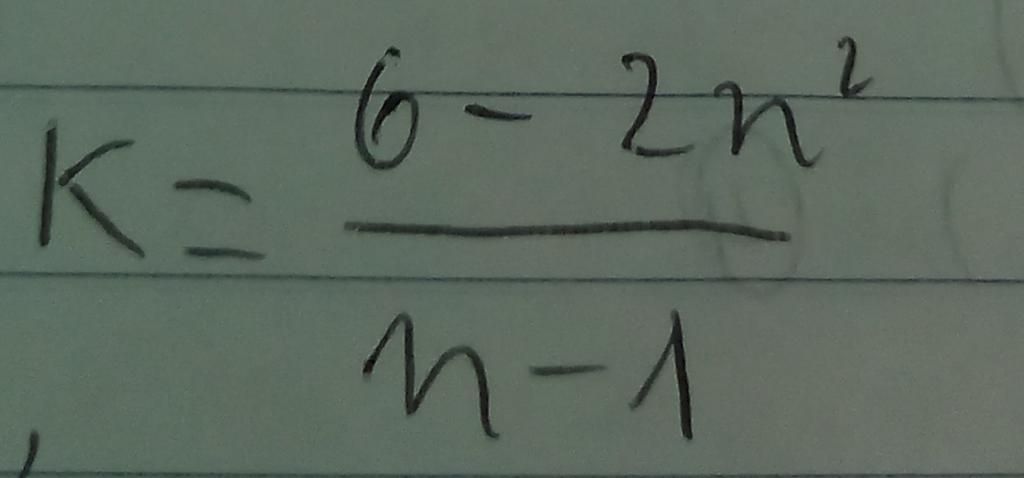 K = \frac{6 - 2n^2}{n - 1}